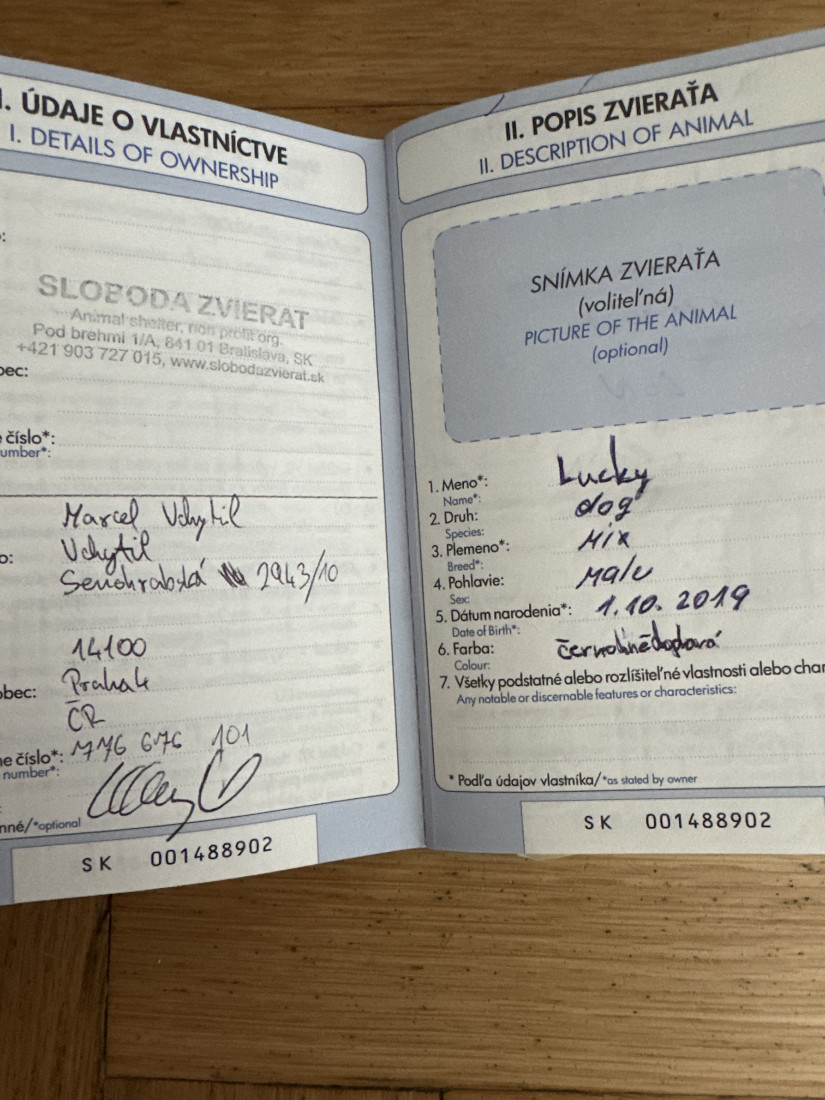 I. ÚDAJE O VLASTNÍCTVE
I. DETAILS OF OWNERSHIP
SLOBODA ZVIERAT
Animal shelter, non profit org.
Pod brehmi 1/A, 841 01 Bratislava, SK
+421 903 727 015, www.slobodazvierat.sk
bec:
číslo*:
umber*:
Marcel Vchytil
Vchytil
2943/10
14100
Praha 4
obec:
ČR
ne číslo*: 776 676 101
number*:
nné/*optional
SK 001488902
II. POPIS ZVIERAŤA
II. DESCRIPTION OF ANIMAL
SNÍMKA ZVIERAŤA
(voliteľná)
PICTURE OF THE ANIMAL
(optional)
1. Meno*: Lucky
Name*:
2. Druh: dog
Species:
3. Plemeno*: Mix
Breed*:
4. Pohlavie: Male
Sex:
5. Dátum narodenia*: 1.10.2019
Date of Birth*:
6. Farba:
Colour:
7. Všetky podstatné alebo rozlíšiteľné vlastnosti alebo char
Any notable or discernable features or characteristics:
* Podľa údajov vlastníka/*as stated by owner
SK 001488902